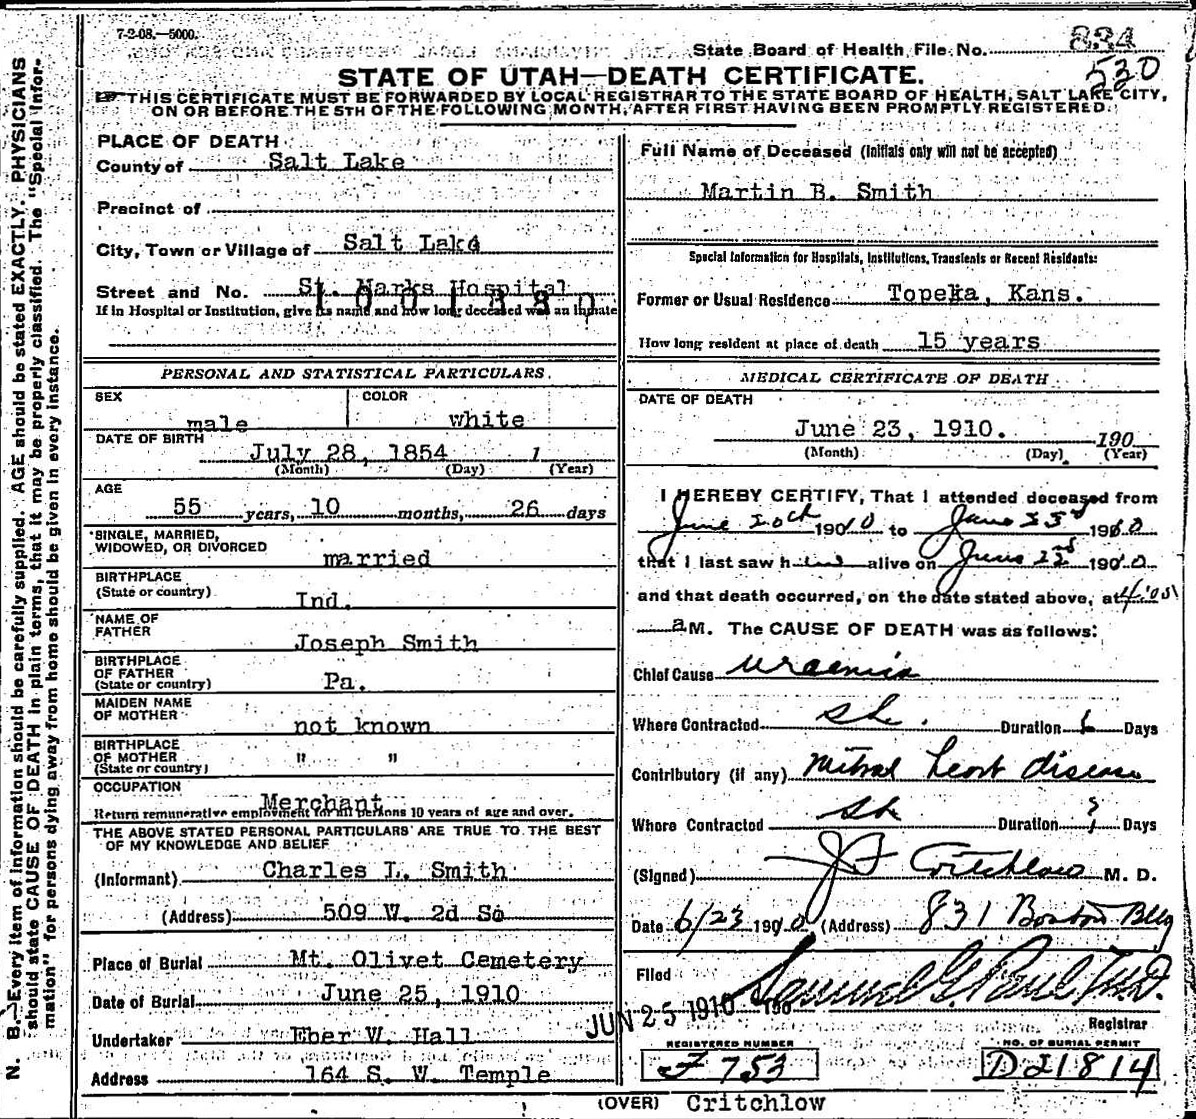 7-2-08.—5000.
State Board of Health File No. 834
530
STATE OF UTAH—DEATH CERTIFICATE.
THIS CERTIFICATE MUST BE FORWARDED BY LOCAL REGISTRAR TO THE STATE BOARD OF HEALTH, SALT LAKE CITY,
ON OR BEFORE THE 5TH OF THE FOLLOWING MONTH, AFTER FIRST HAVING BEEN PROMPTLY REGISTERED.
N. B.—Every item of information should be carefully supplied. AGE should be stated EXACTLY. PHYSICIANS
should state CAUSE OF DEATH in plain terms, that it may be properly classified. The "Special Infor-
mation" for persons dying away from home should be given in every instance.
PLACE OF DEATH
County of Salt Lake
Precinct of
City, Town or Village of Salt Lake
Street and No. St. Marks Hospital
1001380
If in Hospital or Institution, give its name and how long deceased was an inmate
PERSONAL AND STATISTICAL PARTICULARS.
SEX male COLOR white
DATE OF BIRTH
July 28, 1854 1
(Month) (Day) (Year)
AGE
55 years, 10 months, 26 days
SINGLE, MARRIED,
WIDOWED, OR DIVORCED married
BIRTHPLACE
(State or country) Ind.
NAME OF
FATHER Joseph Smith
BIRTHPLACE
OF FATHER
(State or country) Pa.
MAIDEN NAME
OF MOTHER not known
BIRTHPLACE
OF MOTHER " "
(State or country)
OCCUPATION
Merchant
Return remunerative employment for all persons 10 years of age and over.
THE ABOVE STATED PERSONAL PARTICULARS ARE TRUE TO THE BEST
OF MY KNOWLEDGE AND BELIEF
(Informant) Charles L. Smith
(Address) 509 W. 2d So
Place of Burial Mt. Olivet Cemetery
Date of Burial June 25, 1910
Undertaker Eber W. Hall
Address 164 S. W. Temple
Full Name of Deceased (Initials only will not be accepted)
Martin B. Smith
Special Information for Hospitals, Institutions, Transients or Recent Residents:
Former or Usual Residence Topeka, Kans.
How long resident at place of death 15 years
MEDICAL CERTIFICATE OF DEATH
DATE OF DEATH
June 23, 1910. 190
(Month) (Day) (Year)
I HEREBY CERTIFY, That I attended deceased from
June 20th 1910 to June 23d 1910
that I last saw him alive on June 23d 1910
and that death occurred, on the date stated above, at 4:05
a M. The CAUSE OF DEATH was as follows:
Chief Cause Uraemia
Where Contracted Duration Days
Contributory (if any) Mitral heart disease
Where Contracted Duration ? Days
(Signed) J F Critchlow M. D.
Date 6/23 1910 (Address) 831 Boston Bldg
Filed JUN 25 1910 190 Samuel G. Paul M.D.
Registrar
REGISTERED NUMBER
F 753
NO. OF BURIAL PERMIT
D21814
(OVER) Critchlow